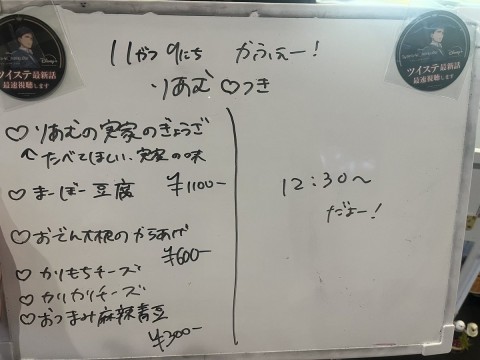 11がつ 9にち かふぇー！
りあむ♡つき
♡りあむの実家のぎょうざ
↖たべてほしい、実家の味
♡まーぼー豆腐 ¥1100-
♡おでん大根のからあげ
¥600-
♡かりもちチーズ
♡カリカリチーズ
♡おつまみ麻辣青豆
¥300-
12:30～
だよー！
Disney+
ツイステ最新話
最速視聴します
Disney+
ツイステ最新話
最速視聴します